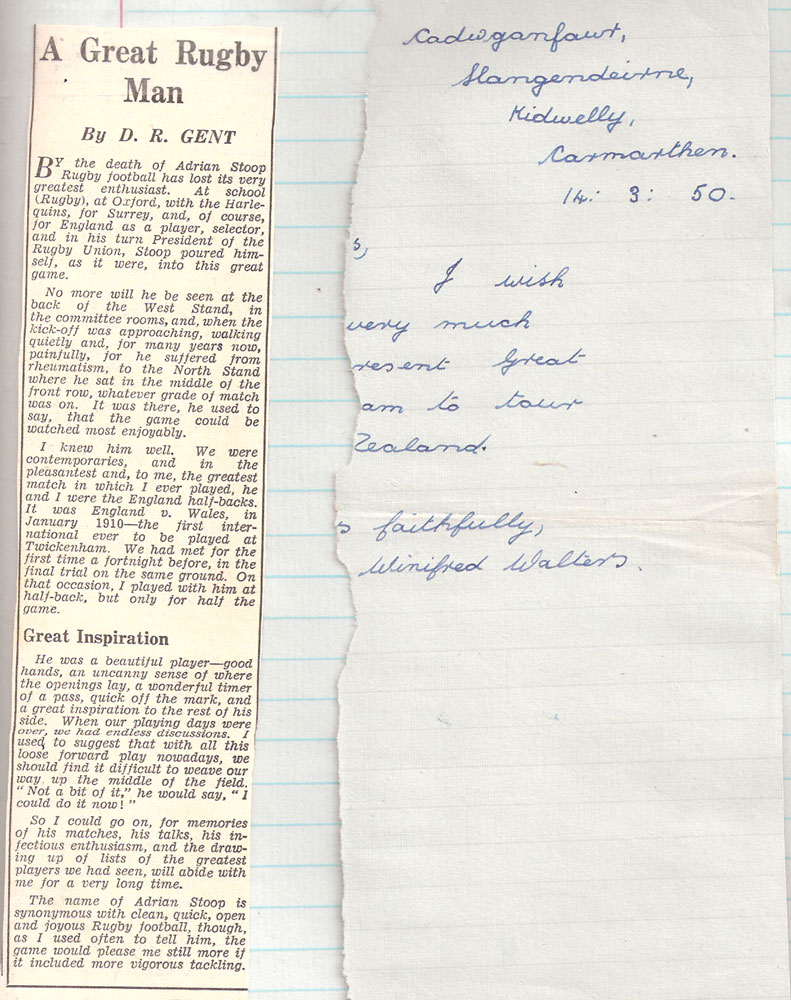 A Great Rugby
Man
By D. R. GENT
BY the death of Adrian Stoop
Rugby football has lost its very
greatest enthusiast. At school
(Rugby), at Oxford, with the Harle-
quins, for Surrey, and, of course,
for England as a player, selector,
and in his turn President of the
Rugby Union, Stoop poured him-
self, as it were, into this great
game.
No more will he be seen at the
back of the West Stand, in
the committee rooms, and, when the
kick-off was approaching, walking
quietly and, for many years now,
painfully, for he suffered from
rheumatism, to the North Stand
where he sat in the middle of the
front row, whatever grade of match
was on. It was there, he used to
say, that the game could be
watched most enjoyably.
I knew him well. We were
contemporaries, and in the
pleasantest and, to me, the greatest
match in which I ever played, he
and I were the England half-backs.
It was England v. Wales, in
January 1910—the first inter-
national ever to be played at
Twickenham. We had met for the
first time a fortnight before, in the
final trial on the same ground. On
that occasion, I played with him at
half-back, but only for half the
game.
Great Inspiration
He was a beautiful player—good
hands, an uncanny sense of where
the openings lay, a wonderful timer
of a pass, quick off the mark, and
a great inspiration to the rest of his
side. When our playing days were
over, we had endless discussions. I
used to suggest that with all this
loose forward play nowadays, we
should find it difficult to weave our
way up the middle of the field.
"Not a bit of it," he would say, "I
could do it now!"
So I could go on, for memories
of his matches, his talks, his in-
fectious enthusiasm, and the draw-
ing up of lists of the greatest
players we had seen, will abide with
me for a very long time.
The name of Adrian Stoop is
synonymous with clean, quick, open
and joyous Rugby football, though,
as I used often to tell him, the
game would please me still more if
it included more vigorous tackling.
Cadwganfawr,
Llangendeirne,
Kidwelly,
Carmarthen.
14: 3: 50.
s,
I wish
very much
resent Great
am to tour
Zealand.
s faithfully,
Winifred Walters.